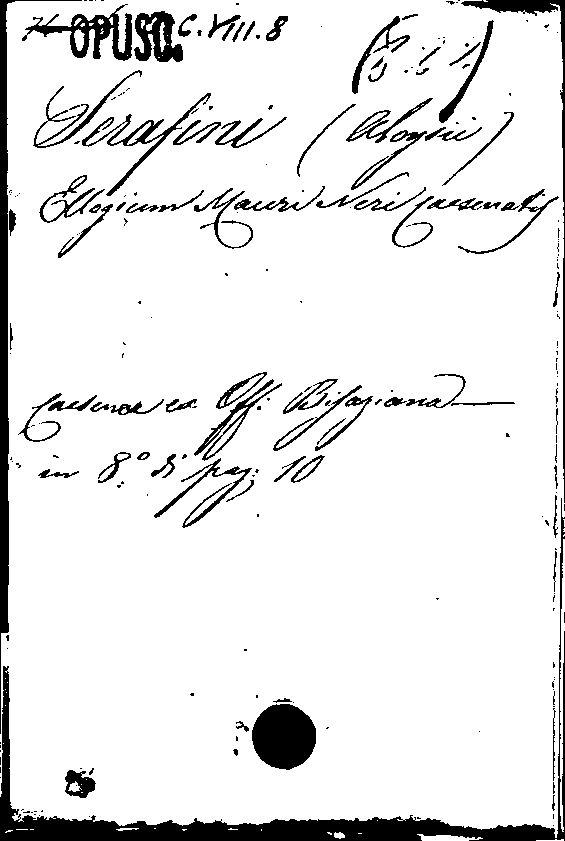 OPUSC. C.VIII.8
Serafini (Aloysii)
Ellogium Mauri Neri Caesenatis
Caesenae ex Off: Bisaziana
in 8.º di pag: 10